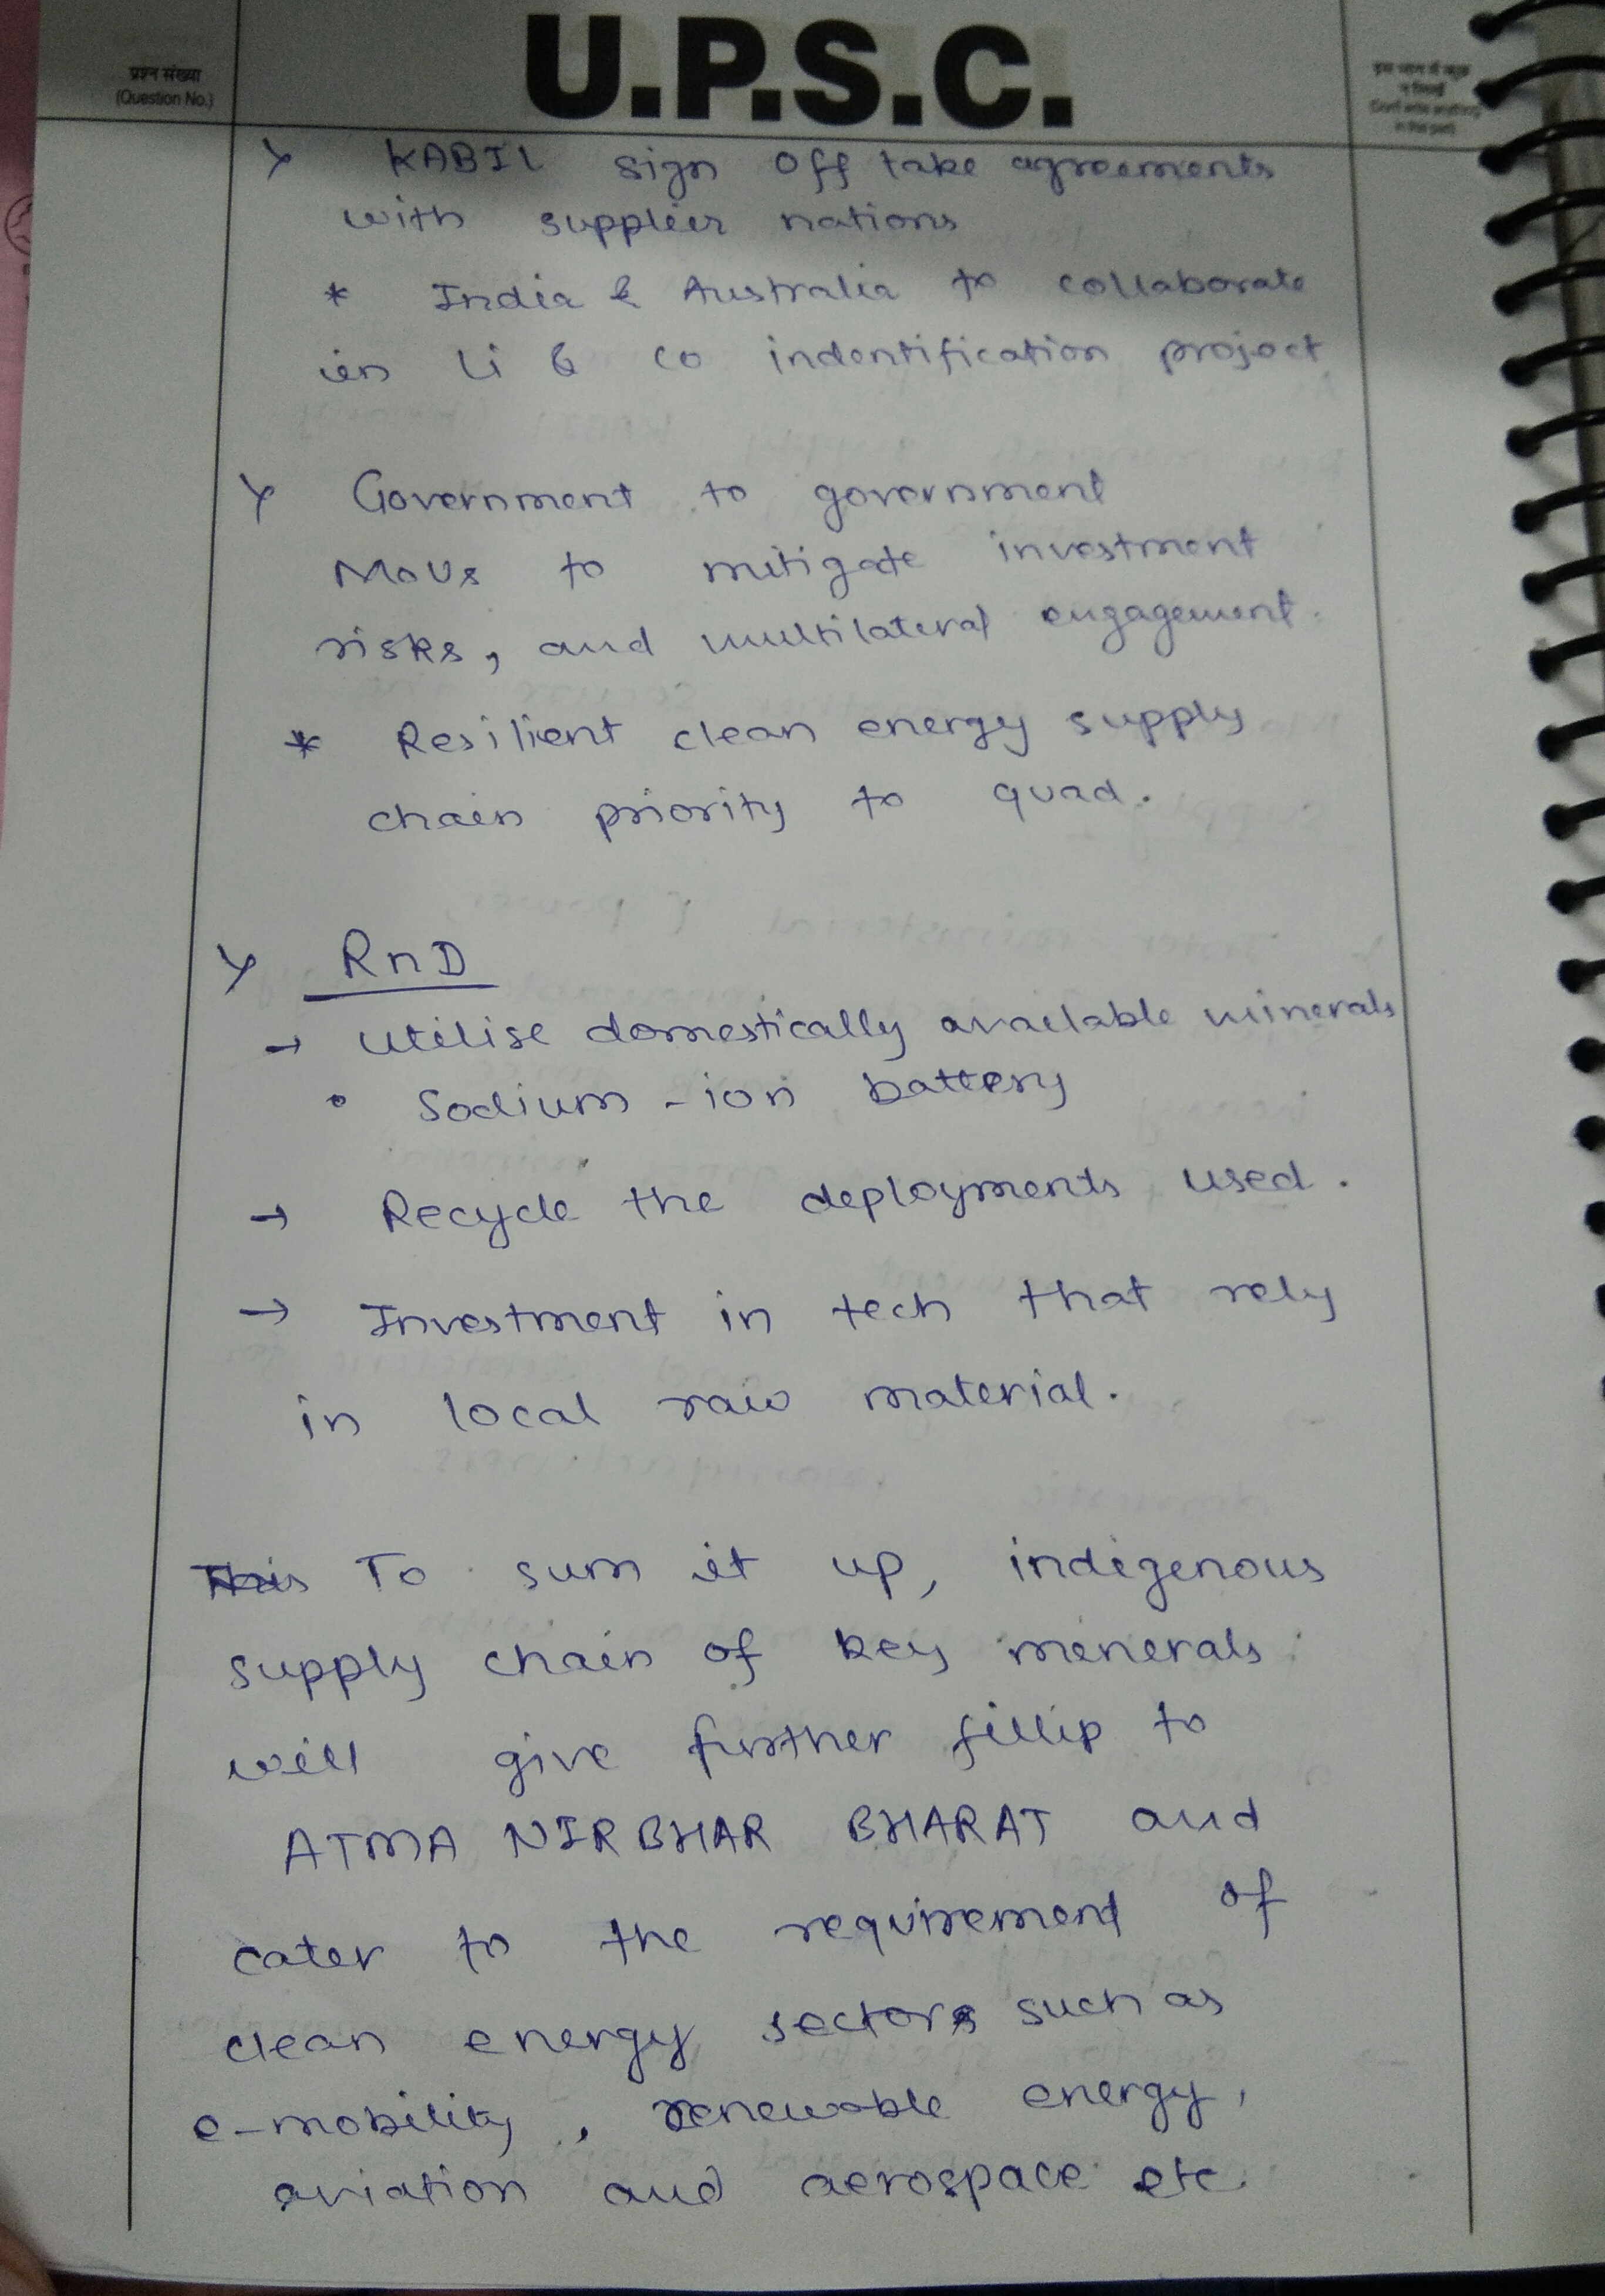 U.P.S.C.
प्रश्न संख्या
(Question No.)
KABIL sign off take agreements
with supplier nations
* India & Australia to collaborate
in Li & Co indentification project
Government to government
MoUs to mitigate investment
risks, and multilateral engagement.
* Resilient clean energy supply
chain priority to quad.
RnD
→ Utilise domestically available minerals
• Sodium-ion battery
→ Recycle the deployments used.
→ Investment in tech that rely
in local raw material.
To sum it up, indigenous
supply chain of key minerals
will give further fillip to
ATMA NIRBHAR BHARAT and
cater to the requirement of
clean energy sectors such as
e-mobility, renewable energy,
aviation and aerospace etc.